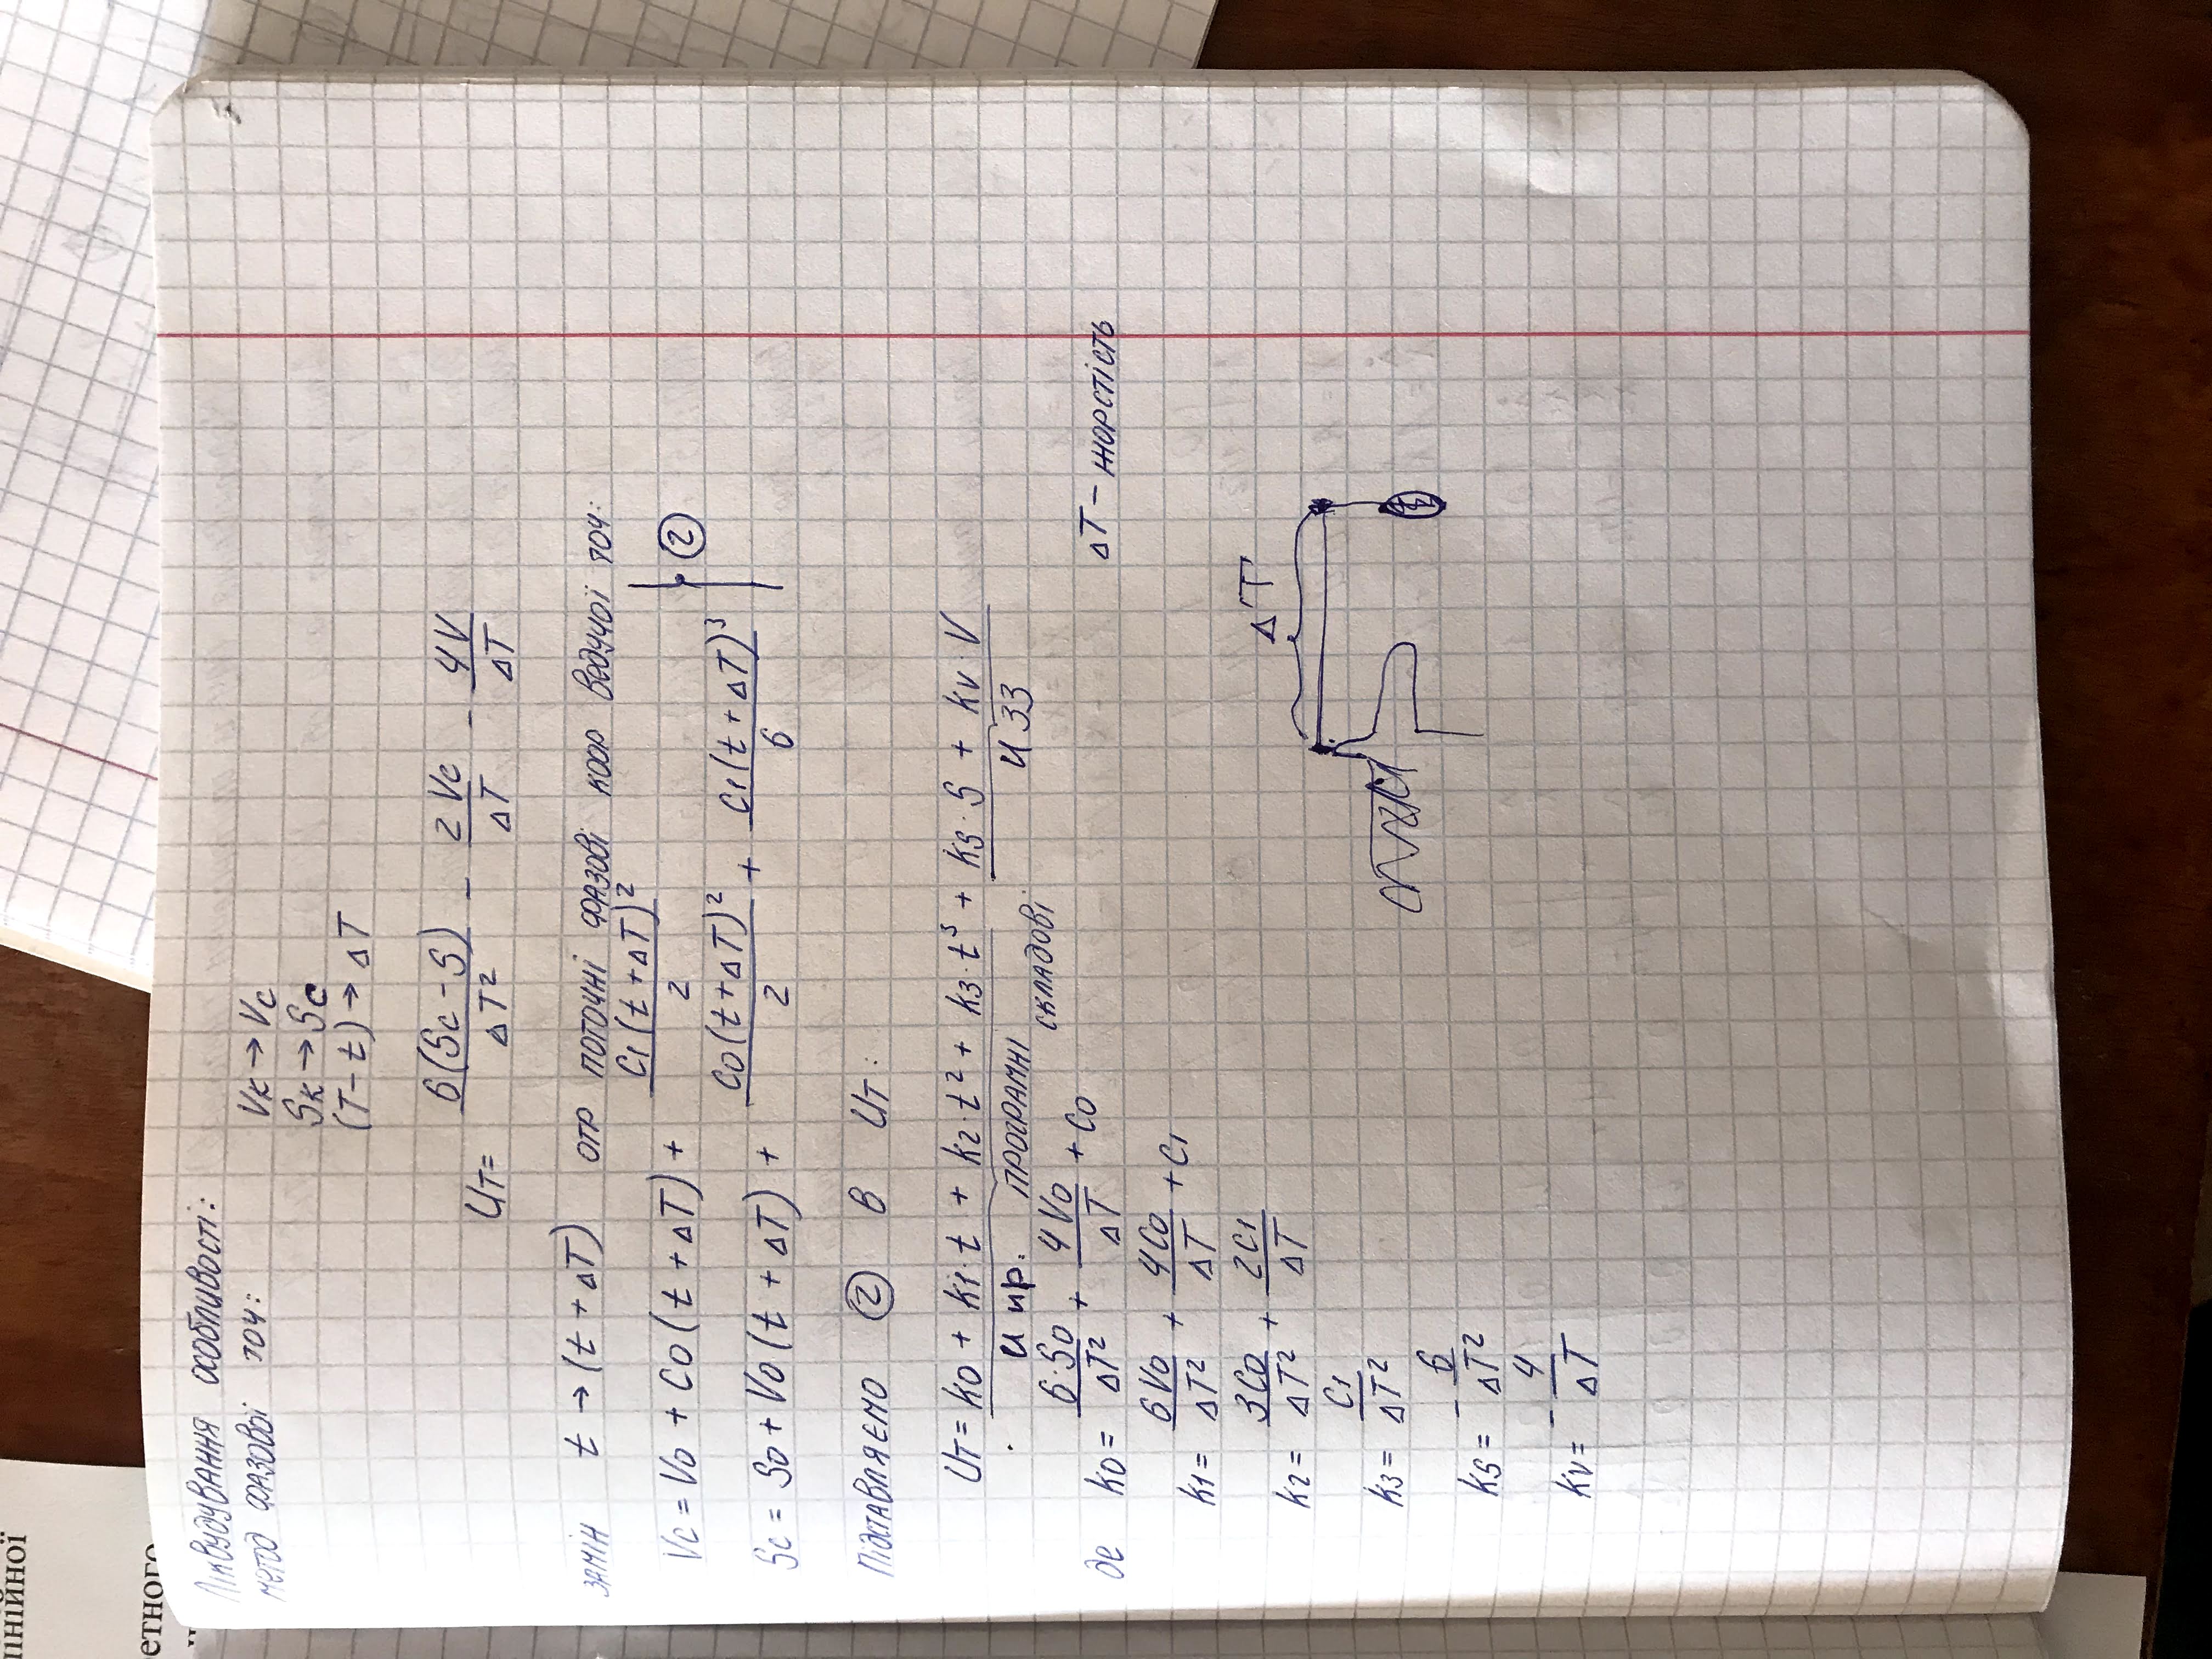 лінійної
ретного
Ліквудування особливості:
метод фазової точ:
Vк → Vc
Sк → Sc
(T - t) → ΔT
Uт = 6(Sc - S)/ΔT² - 2Vc/ΔT - 4V/ΔT
замін t → (t + ΔT) отр поточні фазові коор ведучої точ:
Vc = V0 + C0(t + ΔT) + C1(t + ΔT)²/2
②
Sc = S0 + V0(t + ΔT) + C0(t + ΔT)²/2 + C1(t + ΔT)³/6
Підставляємо ② в Uт:
Uт = k0 + k1·t + k2·t² + k3·t³ + ks·S + kv·V
U пр. програмні складові
U зз
де k0 = 6·S0/ΔT² + 4V0/ΔT + C0
ΔT - жорстість
k1 = 6V0/ΔT² + 4C0/ΔT + C1
k2 = 3C0/ΔT² + 2C1/ΔT
k3 = C1/ΔT²
ks = - 6/ΔT²
kv = - 4/ΔT
ΔT